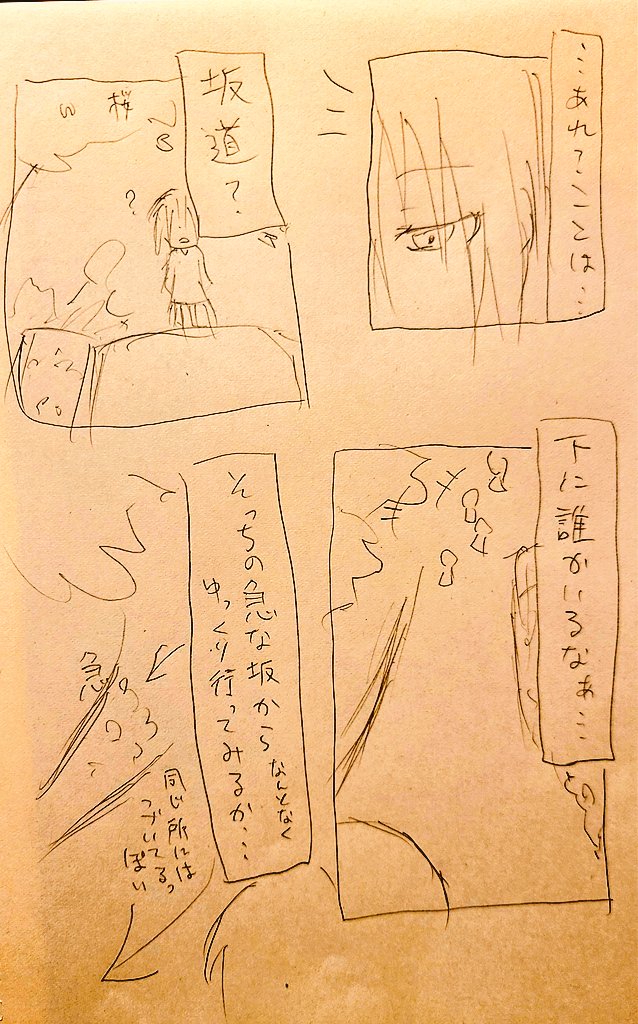 …あれ？ここは…
坂道？
桜
？
下に誰かいるなぁ…
そっちの急な坂から
なんとなく
ゆっくり行ってみるか…
急
同じ所には
つづいてるっ
ぽい